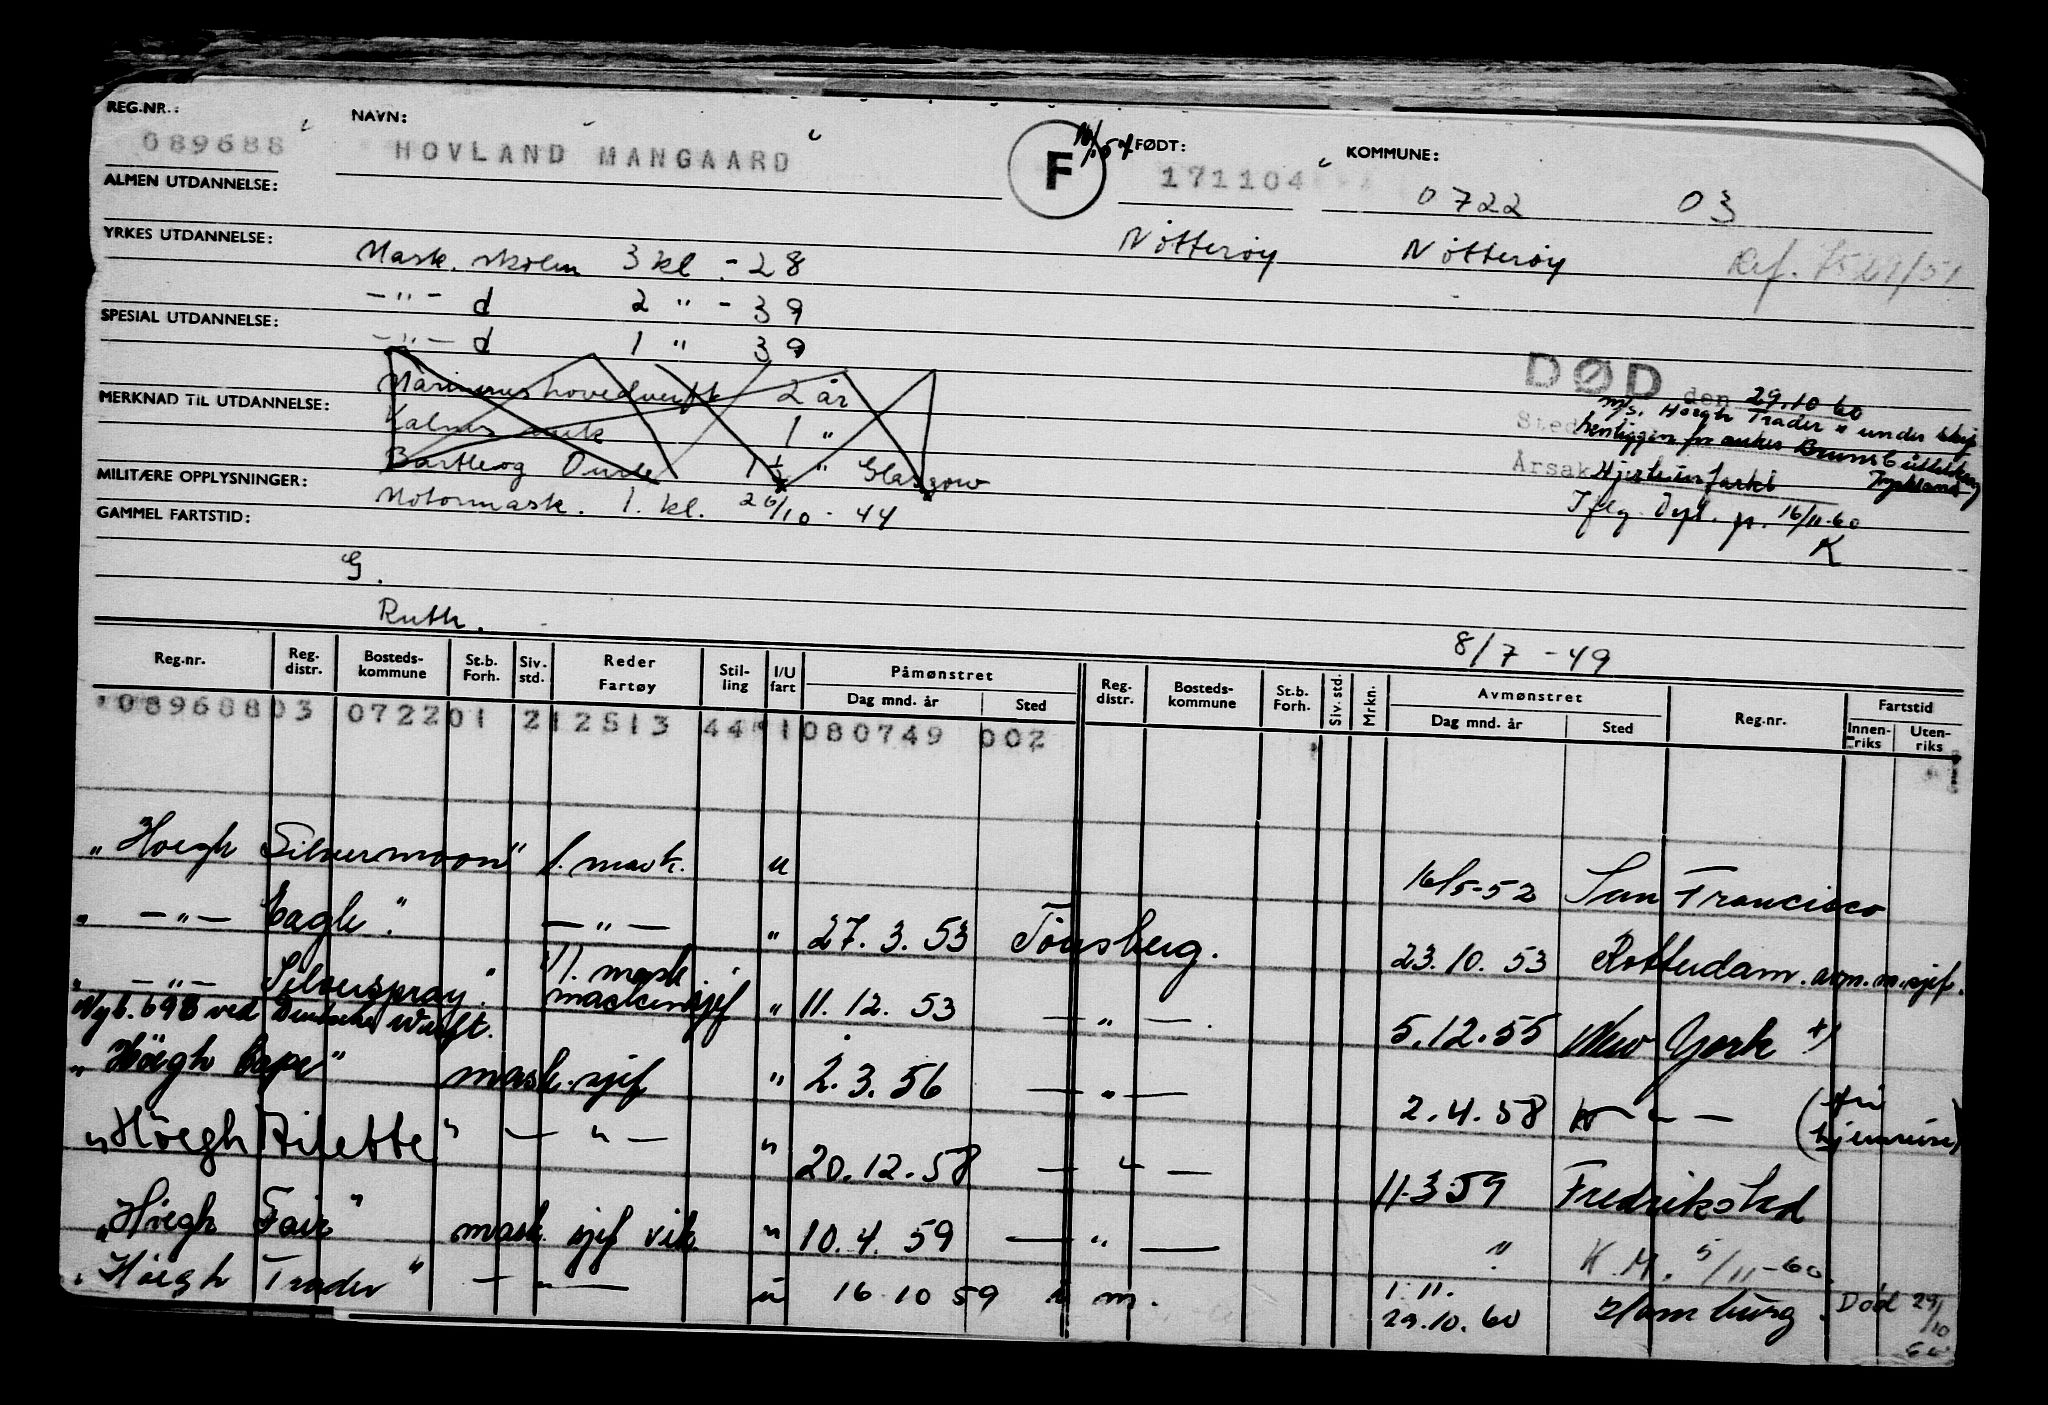 REG.NR.: NAVN: FØDT: KOMMUNE:
089688 HOVLAND MANGAARD F 171104 0722 03
ALMEN UTDANNELSE:
YRKES UTDANNELSE: Mask. skolen 3 kl. - 28 Nötterøy Nötterøy Ref.
-"- d 2 " - 39
SPESIAL UTDANNELSE: -"- d 1 " 39
DØD den 29.10 60
Marinens hovedverft 2 år
MERKNAD TIL UTDANNELSE:
m/s. Høegh Trader " under skip
Sted
Kalnes 1 "
1½ " Glasgow
Årsak Hjerteinfarkt Tyskland
MILITÆRE OPPLYSNINGER: Motormask. 1. kl. 26/10 - 44
Iflg. Dpt. p. 16/11-60
K
GAMMEL FARTSTID:
G.
Ruth.
8/7 - 49
Reg.nr. Reg. distr. Bosteds- kommune St.b. Forh. Siv. std. Reder Fartøy Stil- ling I/U fart Påmønstret Dag mnd. år Sted Reg. distr. Bosteds- kommune St.b. Forh. Siv. std. Mrkn. Avmønstret Dag mnd. år Sted Reg.nr. Fartstid Innen- riks Uten- riks
08968803 072201 212513 44 1080749 002
"Hoegh Silvermoon" 1. mask. u 16/5-52 San Francisco
" -"- Eagle" -"- " 27. 3. 53 Tönsberg. 23. 10. 53 Rotterdam. avm. m.sjef.
" -"- Silverspray" 1. mask maskinsjef " 11. 12. 53 -"-. 5.12.55 New York
Nyb. 698 ved Deutsche Werft.
"Höegh Cape" mask. sjef " 2. 3. 56 -"- 2. 4. 58 -"-
"Höegh Arlette" -"- " 20. 12. 58 -"- 11.3 59 Fredrikstad
"Höegh Fair" mask. sjef vik. " 10. 4. 59 -"- " K. M. 5/11-60.
"Höegh Trader" -"- u 16 10 59 m. 1. 11.
29. 10. 60 Hamburg. Död 29/10 60